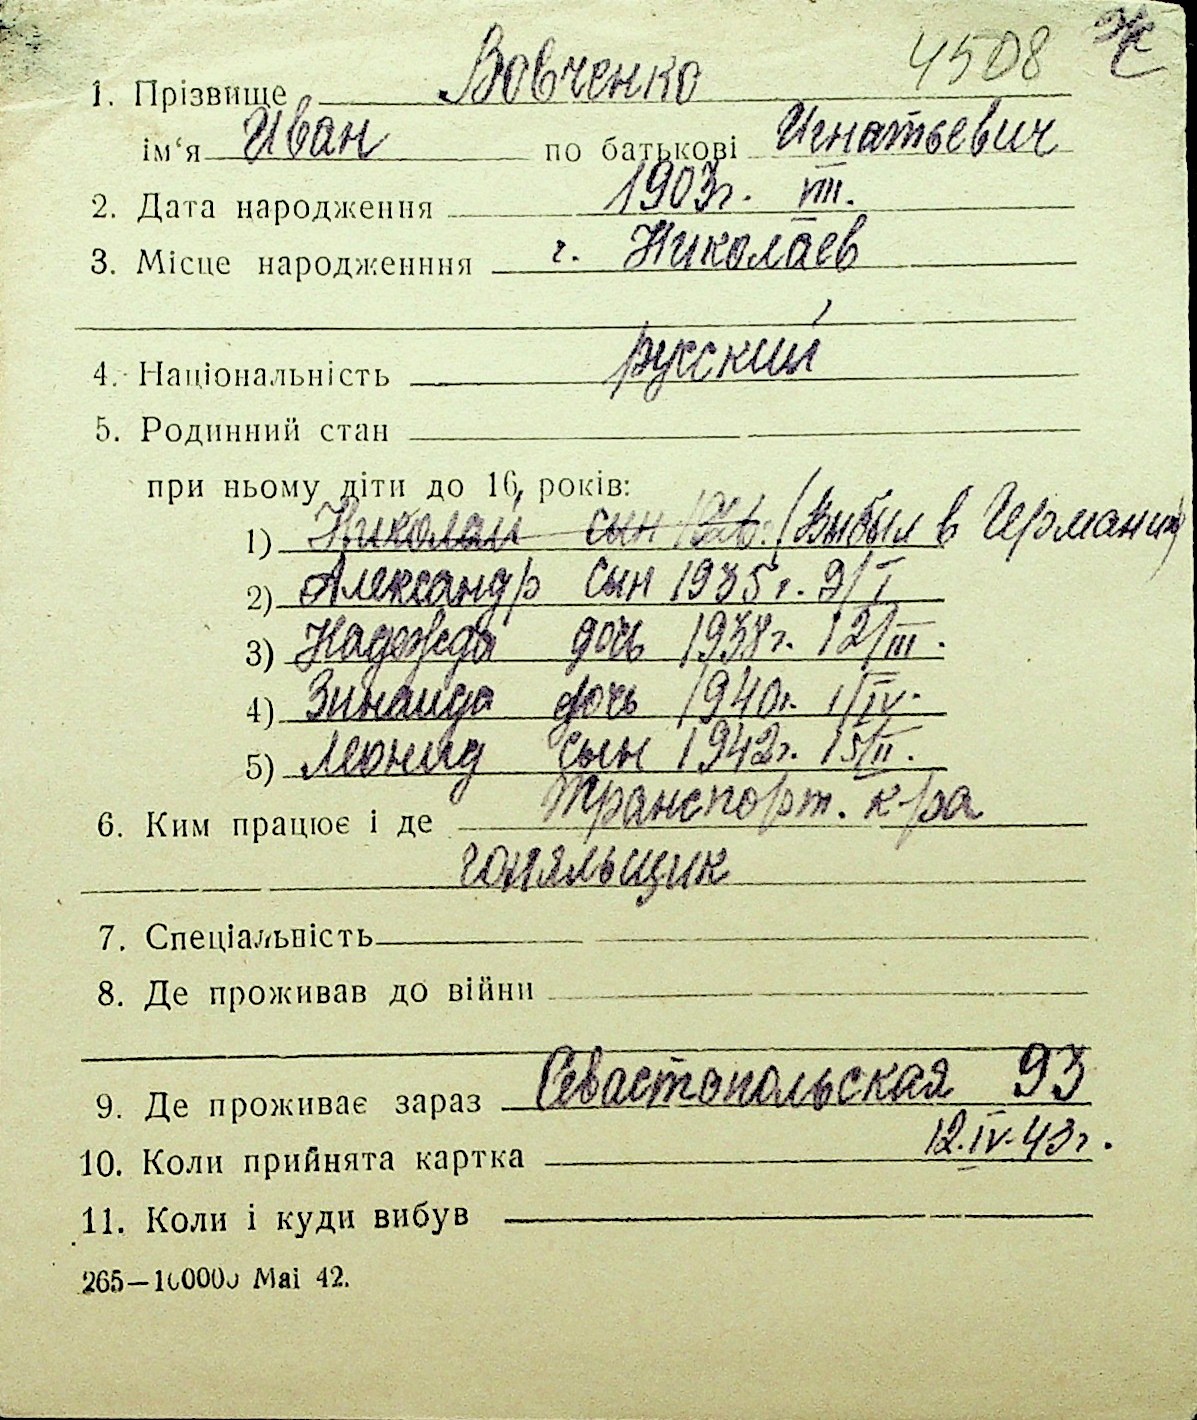 4508 Ж
1. Прізвище Вовченко
ім‘я Иван по батькові Игнатьевич
2. Дата народження 1903г. VIII.
3. Місце народженння г. Николаев
4. Національність русский
5. Родинний стан
при ньому діти до 16 років:
1) Николай сын 1926. (Выбыл в Германию)
2) Александр сын 1935г. 9/I
3) Надежда дочь 1938г. 12/III.
4) Зинаида дочь 1940г. 1/IV.
5) Леонид сын 1942г. 15/II.
6. Ким працює і де Транспорт. к-ра
гоняльщик
7. Спеціальність
8. Де проживав до війни
9. Де проживає зараз Севастопольская 93
10. Коли прийнята картка 12.IV.43г.
11. Коли і куди вибув
265—100000 Mai 42.